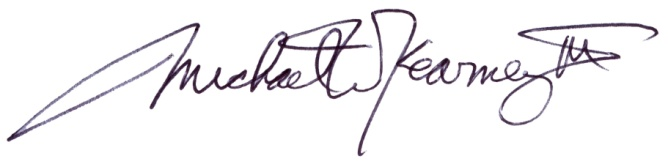 Michael W Kearney III